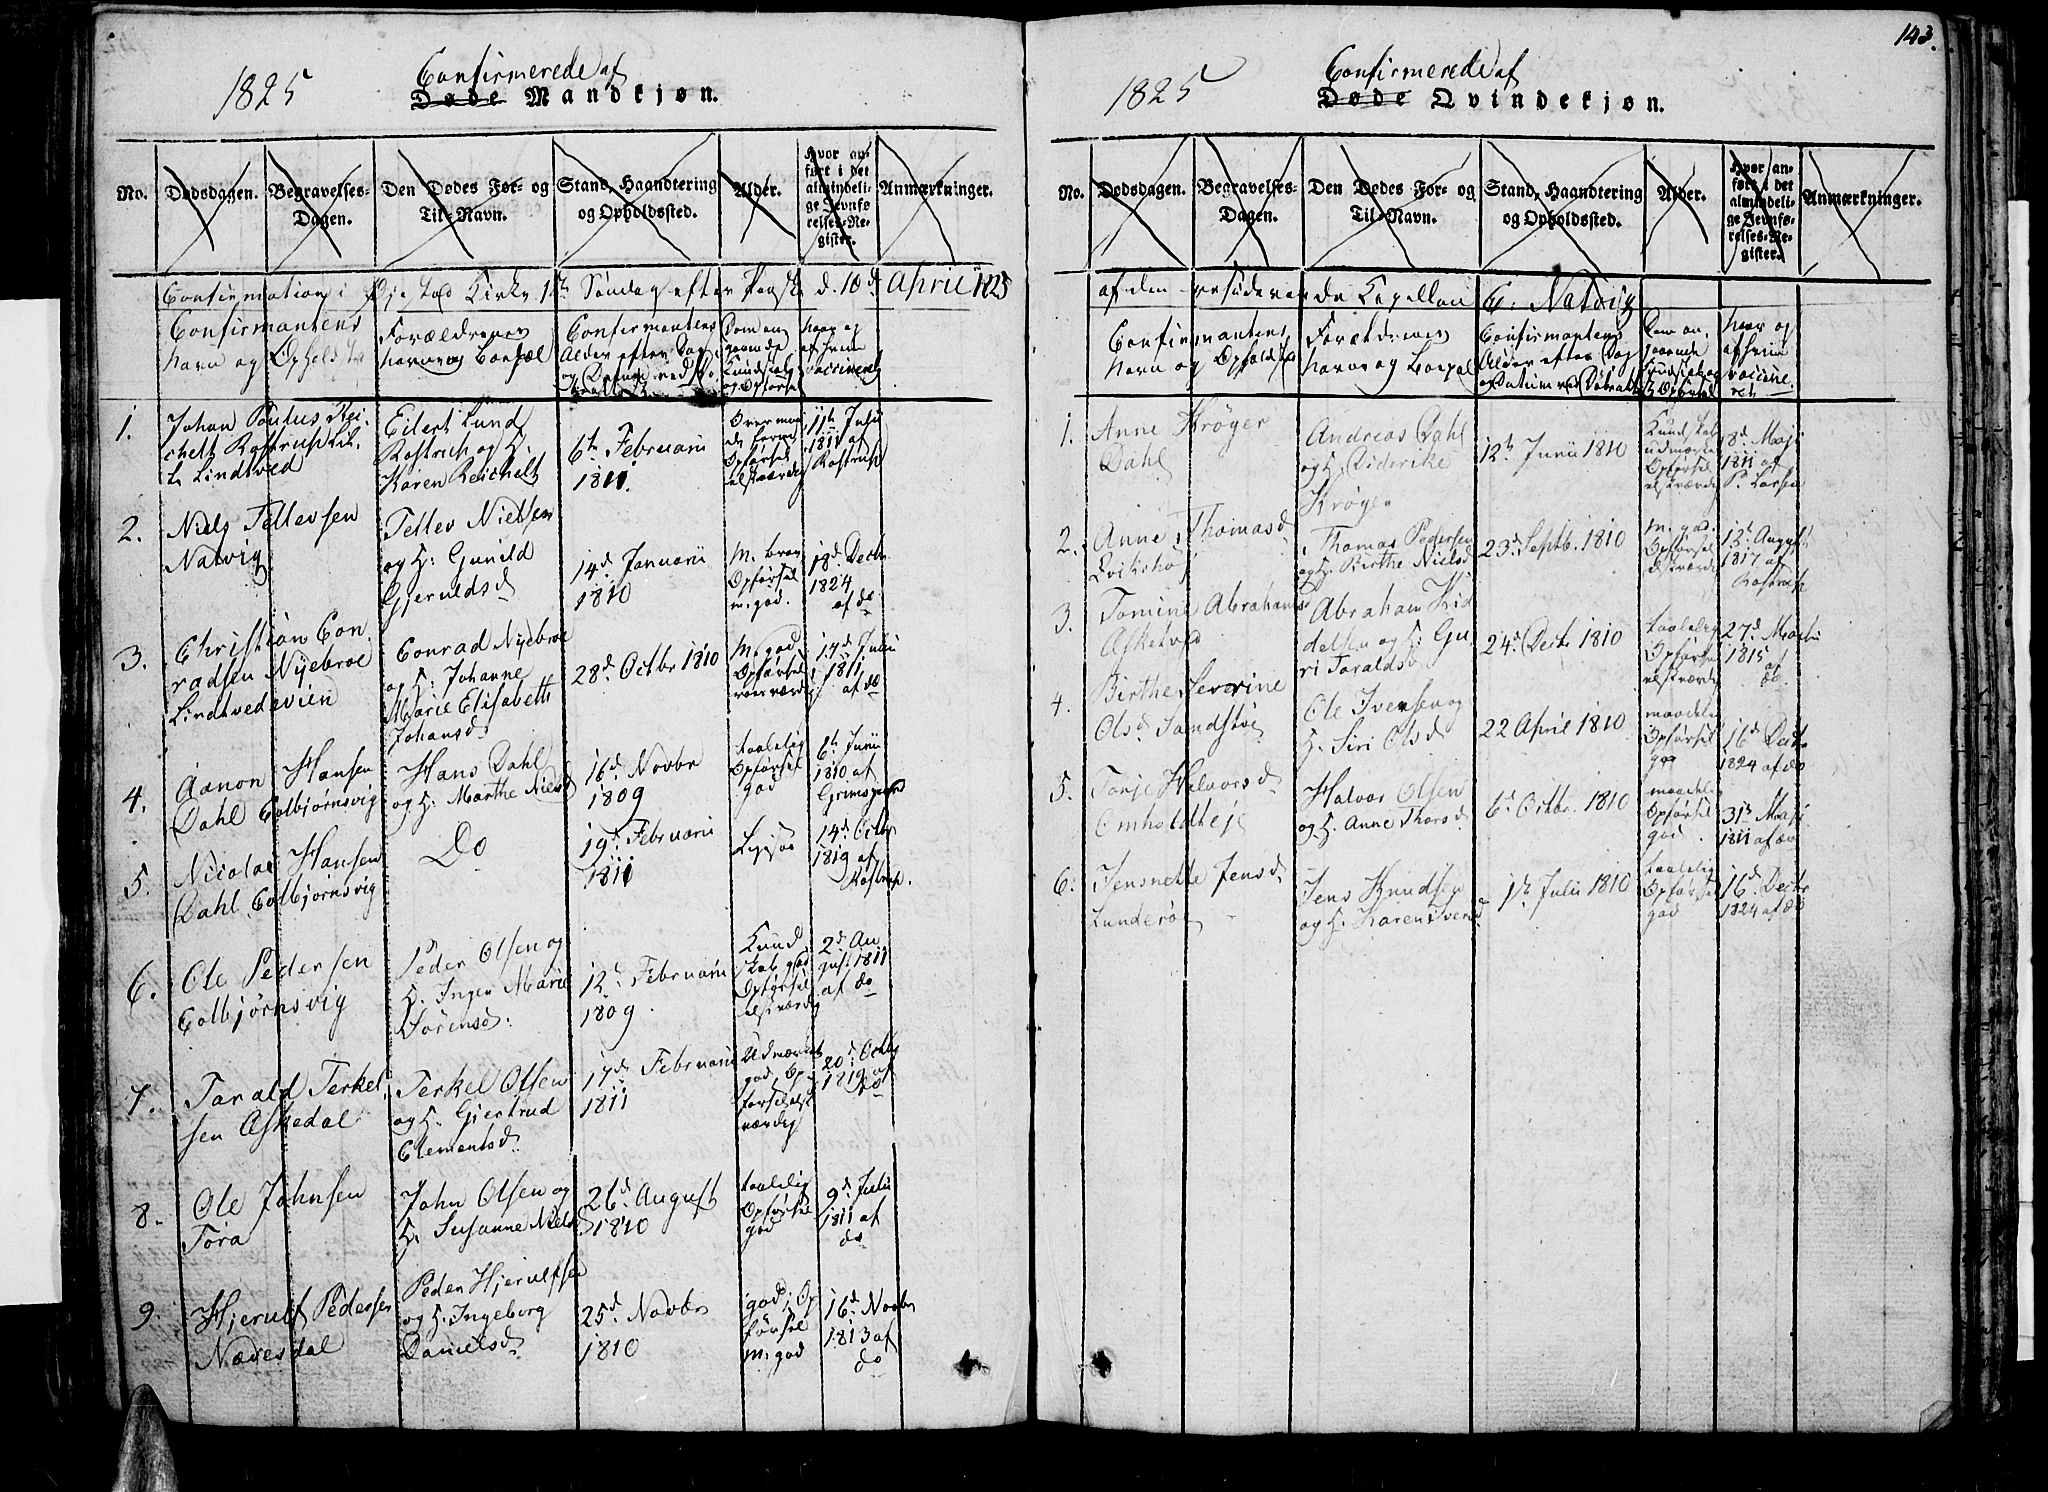 1825
Confirmerede af
Døde Mandkjøn.
No.
Dødsdagen.
Begravelses-
Dagen.
Den Dødes For- og
Til-Navn.
Stand, Haandtering
og Opholdssted.
Alder.
Hvor an-
ført i det
almindeli-
ge Jevnfø-
relses-Re-
gister.
Anmærkninger.
Confirmation i Øjestad Kirke 1te Søndag efter Paaske d. 10de April 1825
Confirmantens
Navn og Opholdsted
Forældrenes
Navne og Boepæl
Confirmantens
Alder efter Dag
og Datum ved
Dom an
gaaende
Kundskab
og Opførsel
Naar og
af hvem
vaccineret
1.
Johan Paulus Rei
chelt Rostrup
Lindtved
Eilert Lund
Rostrup og H:
Karen Reichelt
6te Februarii
1811.
Opførsel
elskværdig
11te Juli
1811 af
Rostrup
2.
Niels Tellevsen
Natvig
Tellev Nielsen
og H: Gunild
Gjeruldsd
14d Januarii
1810
M. brav
Opførsel
m. god.
18d Decbr
1824
af do
3.
Christian Con
radsen Nyebroe
Lindtvedevien
Conrad Nyebroe
og H: Johanne
Marie Elisabeth
Johansd
28d Octbr 1810
M. god
Opførsel
roesværdig
17d Julii
1811
af do
4.
Aanon Hansen
Dahl Colbjørnsvig
Hans Dahl
og H: Marthe Nielsd
16d Novbr
1809
taalelig
Opførsel
god
6te Junii
1810 af
Grimsgaard
5.
Nicolai Hansen
Dahl Colbjørnsvig
Do
19d Februarii
1811
Ligesaa
14d Octbr
1819 af
Rostrup.
6.
Ole Pedersen
Colbjørnsvig
Peder Olsen og
H. Inger Marie
Sørensd:
12te Februarii
1809.
Kund
skab god
Opførsel
elskværdig
2d Au
gust 1811
af do
7.
Tarald Terkel
sen Askedal
Terkel Olsen
og H. Gjertrud
Clementsd
17d Februarii
1811
Udmærket
god, Op
førsel elsk
værdig
20d Octbr
1819 af
do
8.
Ole Johnsen
Tøra
John Olsen og
H: Susanne Nielsd
26d August
1810
taalelig
Opførsel
god
9d Julii
1811 af
do
9.
Hjerulf Pedersen
Næversdal
Peder Hjerulfsen
og H. Ingeborg
Danielsd
25d Novbr
1810
god; Op
førsel
m. god
16d Novbr
1813 af
do
143.
1825
Confirmerede af
Døde Qvindekjøn.
No.
Dødsdagen.
Begravelses-
Dagen.
Den Dødes For- og
Til-Navn.
Stand, Haandtering
og Opholdssted.
Alder.
Hvor an-
ført i det
almindeli-
ge Jevnfø-
relses-Re-
gister.
Anmærkninger.
af den residerende Capellan C. Natvig
Confirmantens
Navn og Opholdsted
Forældrenes
Navne og Boepæl
Confirmantens
Alder efter Dag
og Datum ved Daaben
Dom an
gaaende
Kundskab og
Opførsel
Naar og
af hvem
vaccine
ret
1.
Anne Krøger
Dahl
Andreas Dahl
og H. Diderike
Krøger
12te Junii 1810
Kundskab
udmærket
Opførsel
elskværdig
8d Maji
1811 af
P. Larsen
2.
Anne Thomasd
Thomas Pedersen
og H. Birthe Nielsd
23d Septb. 1810
M. god.
Opførsel
elskværdig
12te August
1817 af
Rostrup
3.
Tomine Abrahamsd
Asketved
Abraham Kid
delsen og H. Gu
ri Taraldsd
24d Decbr 1810
taalelig
Opførsel
elskværdig
27d Martii
1815 af
do
4.
Birthe Severine
Olsd Sandstøe
Ole Ivensen og
H. Siri Olsd
22 April 1810
maadelig
Opførsel
god
16d Decbr
1824 af do
5.
Torje Halvorsd
Omholdteje
Halvor Olsen
og H. Anne Thorsd
6d Octbr. 1810
maadelig
Opførsel
god.
31te Maji
1811 af do
6.
Jensnette Jensd
Lunderøe
Jens Knudsen
og H. Karen Iversd
1te Julii 1810
taalelig
Opførsel
god
16d Decbr
1824 af do